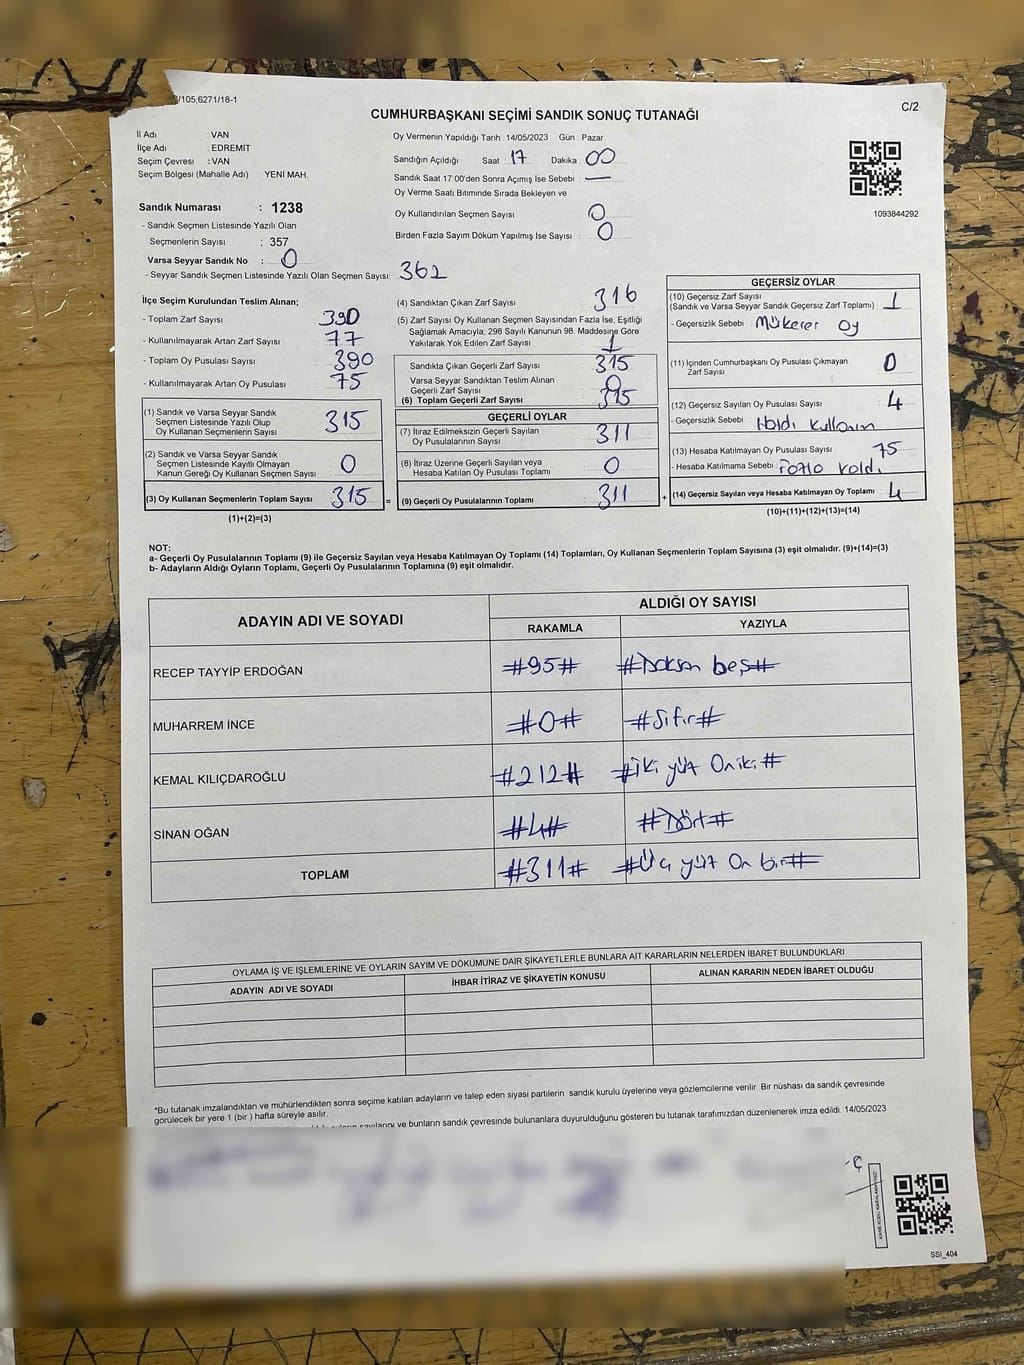 /105;6271/18-1
C/2
CUMHURBAŞKANI SEÇİMİ SANDIK SONUÇ TUTANAĞI
İl Adı : VAN
İlçe Adı : EDREMIT
Seçim Çevresi : VAN
Seçim Bölgesi (Mahalle Adı) : YENİ MAH.
Sandık Numarası : 1238
- Sandık Seçmen Listesinde Yazılı Olan
Seçmenlerin Sayısı : 357
Varsa Seyyar Sandık No : 0
- Seyyar Sandık Seçmen Listesinde Yazılı Olan Seçmen Sayısı: 362
Oy Vermenin Yapıldığı Tarih : 14/05/2023 Gün : Pazar
Sandığın Açıldığı Saat : 17 Dakika : 00
Sandık Saat 17:00'den Sonra Açımış İse Sebebi : —
Oy Verme Saati Bitiminde Sırada Bekleyen ve
Oy Kullandırılan Seçmen Sayısı : 0
Birden Fazla Sayım Döküm Yapılmış İse Sayısı : 0
1093844292
İlçe Seçim Kurulundan Teslim Alınan;
- Toplam Zarf Sayısı : 390
- Kullanılmayarak Artan Zarf Sayısı : 77
- Toplam Oy Pusulası Sayısı : 390
- Kullanılmayarak Artan Oy Pusulası : 75
(1) Sandık ve Varsa Seyyar Sandık
Seçmen Listesinde Yazılı Olup
Oy Kullanan Seçmenlerin Sayısı : 315
(2) Sandık ve Varsa Seyyar Sandık
Seçmen Listesinde Kayıtlı Olmayan
Kanun Gereği Oy Kullanan Seçmen Sayısı : 0
(3) Oy Kullanan Seçmenlerin Toplam Sayısı : 315 =
(1)+(2)=(3)
(4) Sandıktan Çıkan Zarf Sayısı : 316
(5) Zarf Sayısı Oy Kullanan Seçmen Sayısından Fazla İse, Eşitliği
Sağlamak Amacıyla, 298 Sayılı Kanunun 98. Maddesine Göre
Yakılarak Yok Edilen Zarf Sayısı : 1
Sandıkta Çıkan Geçerli Zarf Sayısı : 315
Varsa Seyyar Sandıktan Teslim Alınan
Geçerli Zarf Sayısı : 0
(6) Toplam Geçerli Zarf Sayısı : 315
GEÇERLİ OYLAR
(7) İtiraz Edilmeksizin Geçerli Sayılan
Oy Pusulalarının Sayısı : 311
(8) İtiraz Üzerine Geçerli Sayılan veya
Hesaba Katılan Oy Pusulası Toplamı : 0
(9) Geçerli Oy Pusulalarının Toplamı : 311 +
GEÇERSİZ OYLAR
(10) Geçersiz Zarf Sayısı
(Sandık ve Varsa Seyyar Sandık Geçersiz Zarf Toplamı) : 1
- Geçersizlik Sebebi : Mükerer oy
(11) İçinden Cumhurbaşkanı Oy Pusulası Çıkmayan
Zarf Sayısı : 0
(12) Geçersiz Sayılan Oy Pusulası Sayısı : 4
- Geçersizlik Sebebi : kullanım
(13) Hesaba Katılmayan Oy Pusulası Sayısı : 75
- Hesaba Katılmama Sebebi : Fazla kaldı
(14) Geçersiz Sayılan veya Hesaba Katılmayan Oy Toplamı : 4
(10)+(11)+(12)+(13)=(14)
NOT:
a- Geçerli Oy Pusulalarının Toplamı (9) ile Geçersiz Sayılan veya Hesaba Katılmayan Oy Toplamı (14) Toplamları, Oy Kullanan Seçmenlerin Toplam Sayısına (3) eşit olmalıdır. (9)+(14)=(3)
b- Adayların Aldığı Oyların Toplamı, Geçerli Oy Pusulalarının Toplamına (9) eşit olmalıdır.
ADAYIN ADI VE SOYADI ALDIĞI OY SAYISI
RAKAMLA YAZIYLA
RECEP TAYYİP ERDOĞAN #95# #Doksan beş#
MUHARREM İNCE #0# #Sıfır#
KEMAL KILIÇDAROĞLU #212# #İki yüz Oniki#
SİNAN OĞAN #4# #Dört#
TOPLAM #311# #Üç yüz On bir#
OYLAMA İŞ VE İŞLEMLERİNE VE OYLARIN SAYIM VE DÖKÜMÜNE DAİR ŞİKAYETLERLE BUNLARA AİT KARARLARIN NELERDEN İBARET BULUNDUKLARI
ADAYIN ADI VE SOYADI İHBAR İTİRAZ VE ŞİKAYETİN KONUSU ALINAN KARARIN NEDEN İBARET OLDUĞU
*Bu tutanak imzalandıktan ve mühürlendikten sonra seçime katılan adayların ve talep eden siyasi partilerin sandık kurulu üyelerine veya gözlemcilerine verilir. Bir nüshası da sandık çevresinde
görülecek bir yere 1 (bir ) hafta süreyle asılır.
sayılarını ve bunların sandık çevresinde bulunanlara duyurulduğunu gösteren bu tutanak tarafımızdan düzenlenerek imza edildi. 14/05/2023
SSI_404